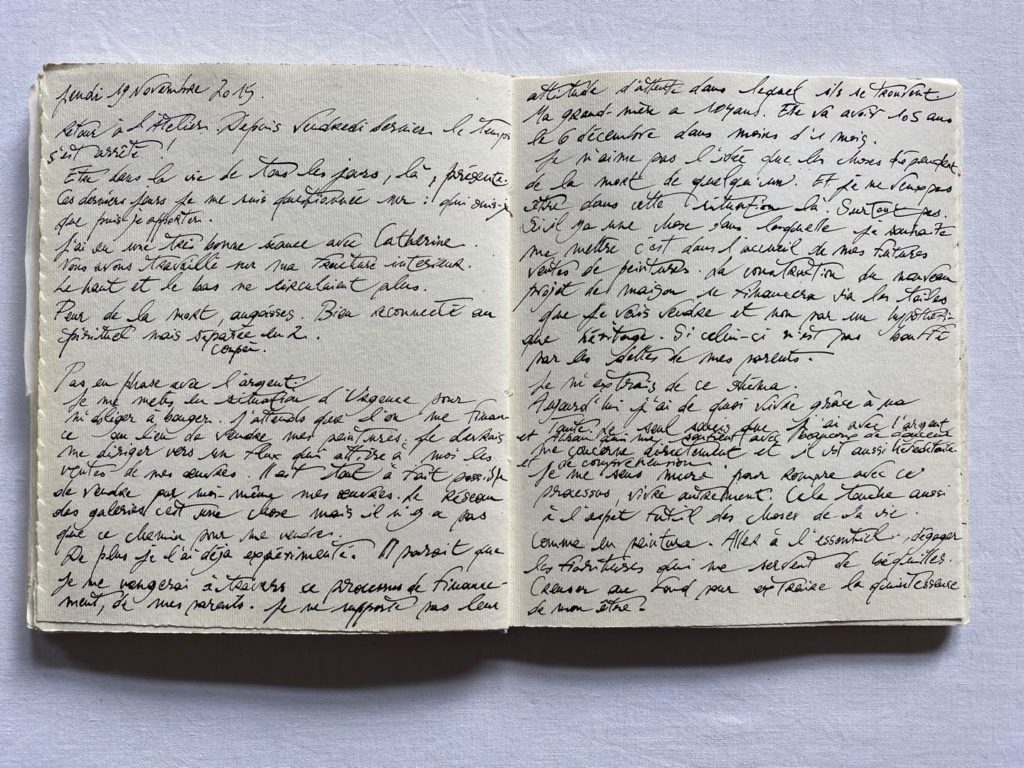 Jeudi 19 Novembre 2015.
Retour à l'Atelier. Depuis Vendredi dernier le temps
s'est arrêté !
Etre dans la vie de tous les jours, là, présente.
Ces derniers jours je me suis questionnée sur : qui suis-je
que puis-je apporter.
J'ai eu une très bonne séance avec Catherine.
Nous avons travaillé sur ma interieur.
Le haut et le bas ne circulaient plus.
Peur de la mort, angoisses. Bien reconnecté au
spirituel mais séparée en 2
coupée.
Pas en phase avec l'argent.
Je me mets en situation d'Urgence pour
m'obliger à bouger. J'attends que l'on me finan-
ce au lieu de vendre mes peintures. Je devrais
me diriger vers un flux qui attire à moi les
ventes de mes œuvres. Il est tout à fait possible
de vendre par moi-même mes œuvres. Le Réseau
des galeries c'est une chose mais il n'y a pas
que ce chemin pour me vendre.
De plus je l'ai déjà expérimenté. Il paraît que
je me vengerai à travers ce processus de finance-
ment, de mes parents. Je ne supporte pas leur
attitude d'attente dans lequel ils se trouvent
Ma grand-mère a 104 ans. Elle va avoir 105 ans
le 6 décembre dans moins d'1 mois.
Je n'aime pas l'idée que les choses dépendent
de la mort de quelqu'un. Et je ne veux pas
être dans cette situation là. Surtout pas.
Si il y a une chose dans laquelle je souhaite
me mettre c'est dans l'accueil de mes futures
ventes de peintures. La construction du nouveau
projet de maison se financera via les toiles
que je vais vendre et non par un hypothéti-
que héritage. Si celui-ci n'est pas bouffé
par les dettes de mes parents.
Je m'extrais de ce shéma.
Aujourd'hui j'ai de quoi vivre grâce à ma
tante. Le seul que j'ai avec l'argent
et me soutient avec beaucoup de douceur
me concerne directement et il est aussi héréditaire
et de compréhension.
Je me sens mure pour rompre avec ce
processus, vivre autrement. Cela touche aussi
à l'aspet futil des choses de la vie.
Comme en peinture. Aller à l'essentiel, dégager
les fioritures qui me servent de béquilles.
Creuser au fond pour extraire la quintessence
de mon être ?